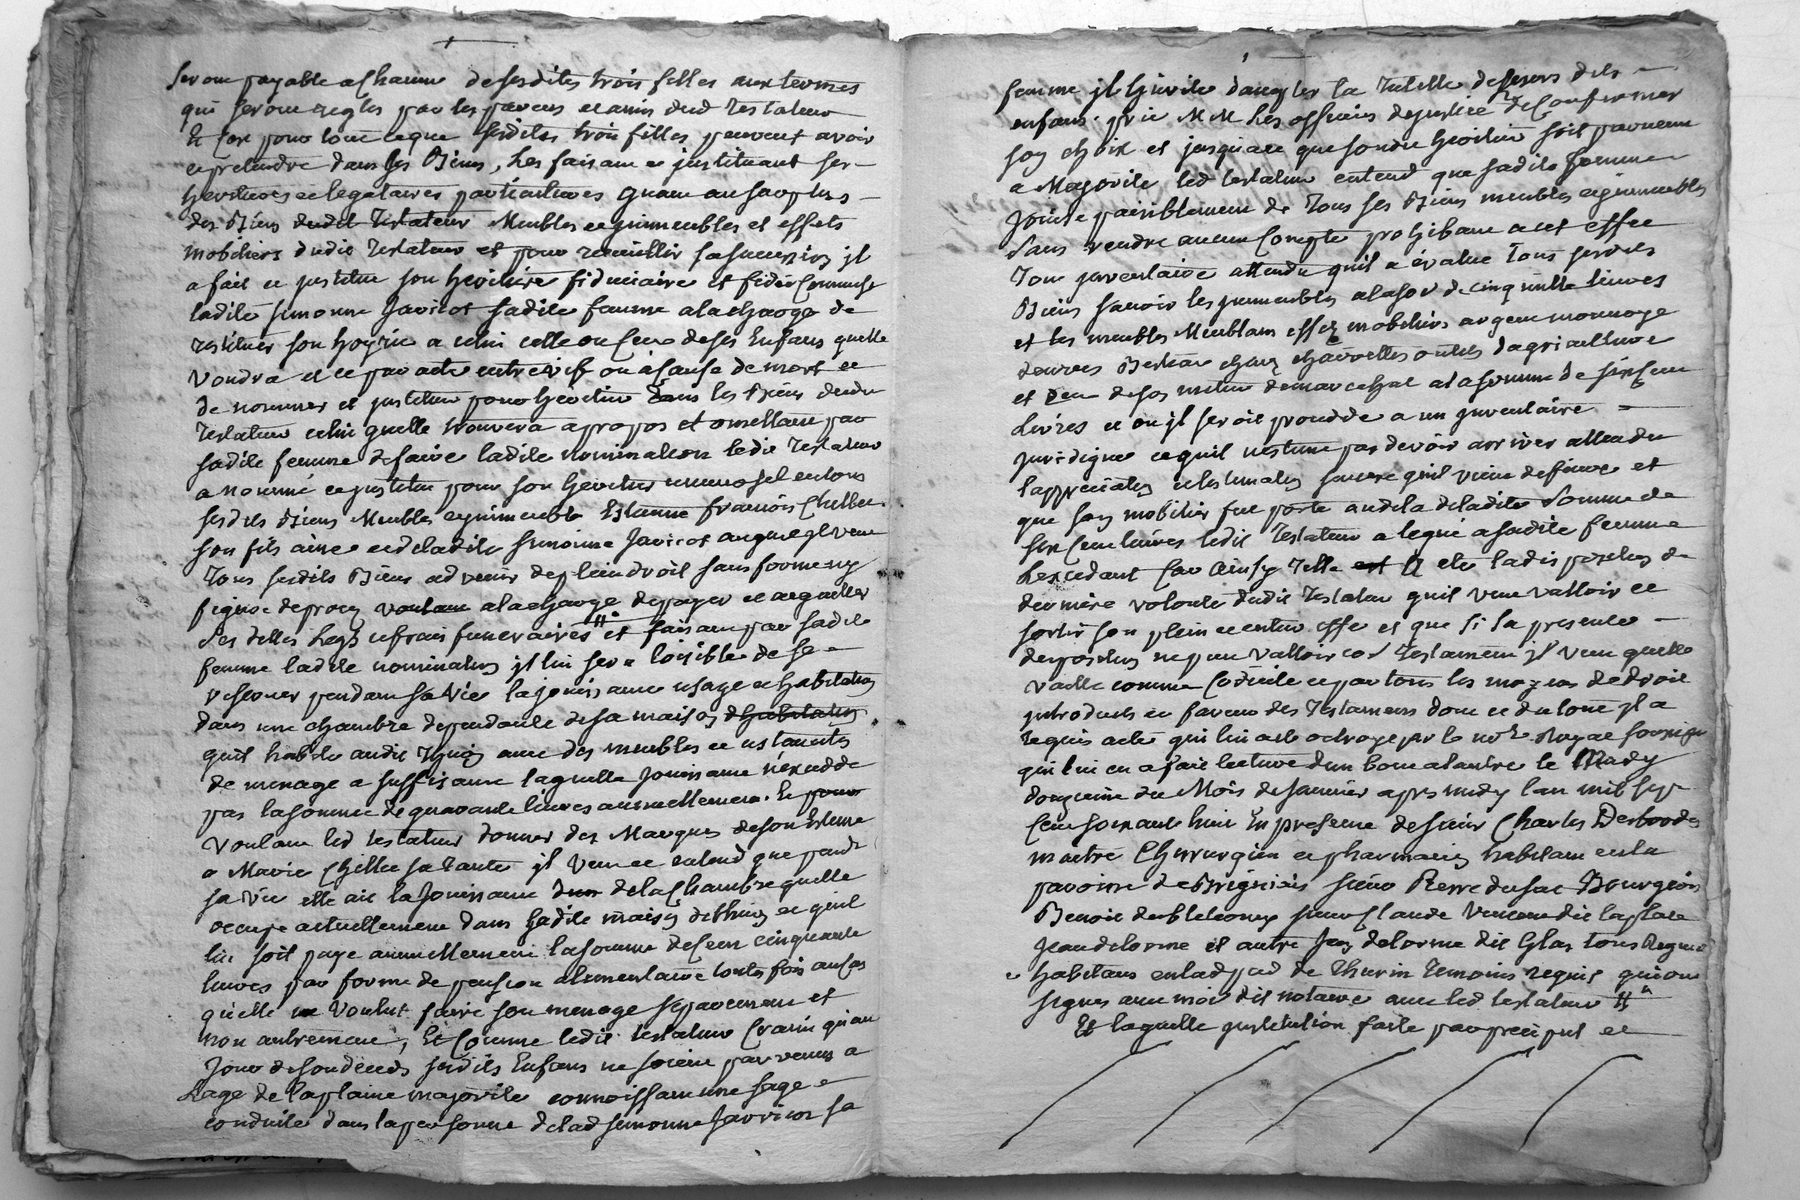 seront payable a chacune de sesdites trois filles aux termes
qui seront regles par les parens et amis dud Testateur
Et ce pour tout ce que sesdites trois filles peuvent avoir
et pretendre dans ses Biens, Les faisant et jnstituant ses
heritieres et legataires particulieres Quant au surplus
des Biens dudit Testateur Meubles et jmmeubles et effets
mobiliers dudit Testateur et pour recueillir sa succession jl
a fait et jnstitué son heritiere fiduciaire et fideicommise
ladite simonne Javricot sadite femme a la charge de
restituer son hoyrie a celui celle ou ceux de ses Enfans quelle
voudra et ce par acte entre vif ou à cause de mort et
de nommer et jnstituer pour heritier dans les Biens dudit
Testateur celui quelle trouvera apropos et omettant par
sadite femme de faire ladite nomination ledit Testateur
a nommé et jnstitué pour son heritier universel en tous
sesdits Biens Meubles et jmmeubles Estienne francois Chillet
son fils ainé et de ladite simonne Javricot auquel jl veut
Tous sesdits Biens advenir de plein droit sans forme ny
figure de proces voulant a la charge de payer et acquitter
ses dettes Legs et frais funeraires # et faisant par sadite
femme ladite nomination jl lui sera loisible de se
reserver pendant sa vie la jouissance usage et habitation
dans une chambre dependante de sa maison d'habitation
quil habite audit Thurin avec des meubles et ustanciles
de menage a suffisance laquelle Jouissance n'excedde
pas la somme de quarante livres annuellement. Et pour
voulant led testateur donner des Marques de son Estime
a Marie Chillet sa Tante jl veut et entend que pendt
sa vie elle ait la Jouissance dun de la Chambre quelle
occupe actuellement dans sadite maison de thurin et quil
lui soit payé annuellement la somme de cent cinquante
livres par forme de pension alimentaire toutes fois au cas
qu'elle ne voulut faire son menage separement et
non autrement, Et Comme ledit testateur Craint qu'au
Jour de son deceds sesdits Enfans ne soient parvenus a
Lage de la plaine majorité connoissant une sage
conduite dans la personne de lad simonne Javricot sa
femme jl Linvite d'accepter la Tutelle de leurs dits
enfans. prie MM Les officiers de justice de Confirmer
son choix et jusqu'a ce que sondit heritier soit parvenu
a Majorité led testateur entend que sadite femme
Jouisse paisiblement de Tous ses Biens meubles et jmmeubles
sans rendre aucun Compte prohibant a cet effet
Tout jnventaire attendu qu'il a evalué Tous sesdits
Biens savoir les jmmeubles a la som de cinq mille livres
et les meubles Meublans effets mobiliers argent monnoyé
denrees Bestiaux chars charrettes outils d'agriculture
et ceux de son metier de marechal a la somme de six cent
Livres et ou jl seroit proceddé a un jnventaire
juridique ce quil nestime pas devoir arriver attendu
lappreciation et lestimation sincere quil vient de faire et
que son mobilier fut porté au dela de ladite somme de
six Cent livres ledit Testateur a legué a sadite femme
Lexcedant Car Ainsy Telle est la disposition de
derniere volonté dudit Testateur quil veut valloir et
sortir son plein et entier effet et que si la presente
disposition ne peut valloir co[mme] testament jl veut quelle
vaille comme Codicile et par tous les moyens de droit
jntroduits en faveur des Testamens dont et du tout jl a
requis acte qui lui a eté octroyé par le nore Royal soussigné
qui lui en a fait lecture dun bout a lautre le Mardy
douzieme du Mois de Janvier apres midy lan mil sept
Cent soixante huit En presence de sieur Charles Desbordes
maitre Chirurgien et pharmacien habitant en la
paroisse de Brignais sieur Pierre dusac Bourgeois
Benoit dublelony sieur Claude Vincent dit laplace
Jean delorme et autre Jean delorme dit Glas tous
habitans en lad par de Thurin Temoins requis qui ont
signes avec moi dit notaire avec led testateur #
# Et laquelle jnstitution faite par preciput et